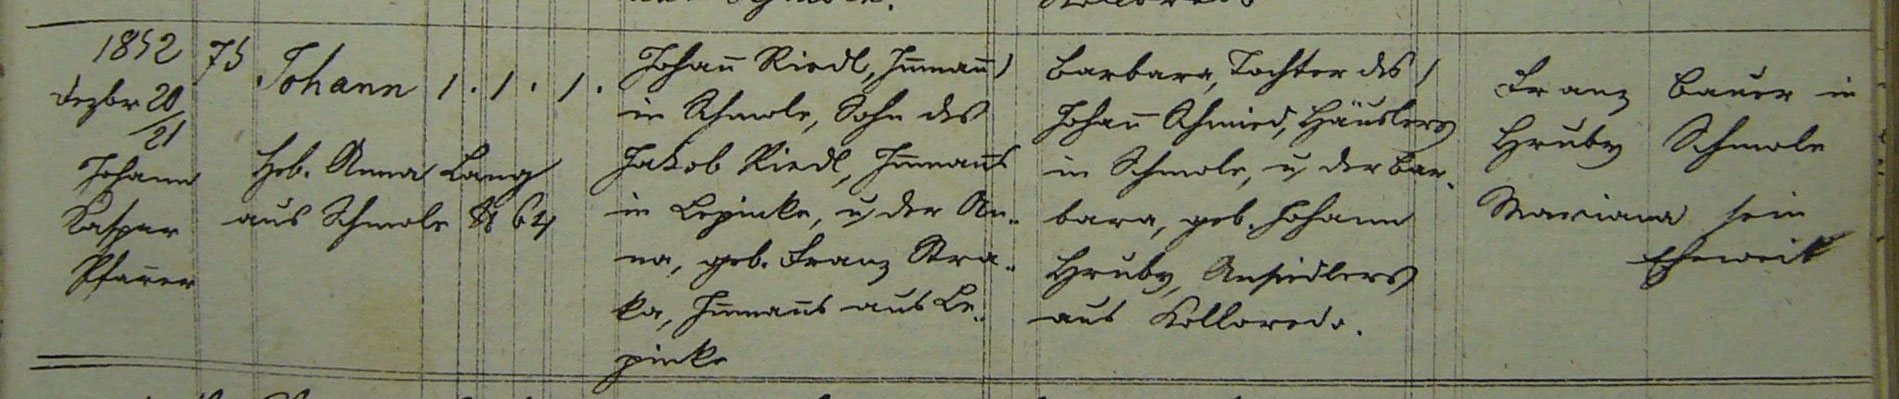 1852
Dezbr 20/21
Johann
Kaspar
Pfarrer
75
Johann 1. 1. 1.
Heb. Anna Lang
aus Schmole N 64
Johann̄ Riedl, Inman̄
in Schmole, Sohn des
Jakob Riedl, Inman̄s
in Lepinke, u der An-
na, geb. Franz Stra-
ka, Inman̄s aus Le-
pinke
Barbara, Tochter des
Johan̄ Schmied, Häuslers
in Schmole, u der Bar-
bara, geb. Johann
Hruby, Ansiedlers
aus Kolloredo.
Franz Bauer in
Hruby Schmole
Mariana sein
Eheweib